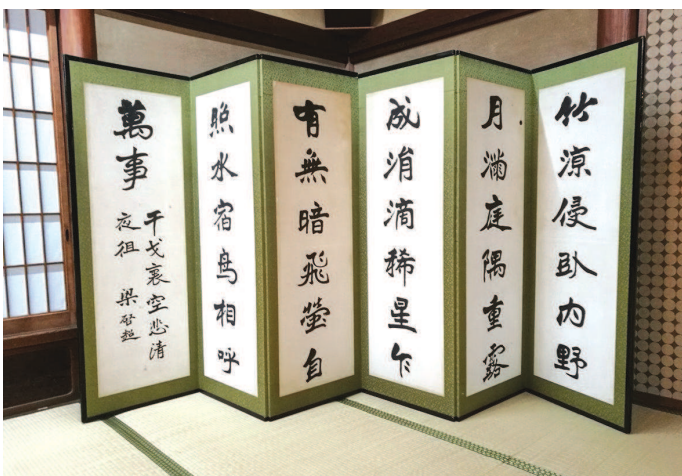 竹涼侵臥内野
月滿庭隅重露
成涓滴稀星乍
有無暗飛螢自
照水宿鳥相呼
萬事
干戈裏空悲清
夜徂 梁啓超